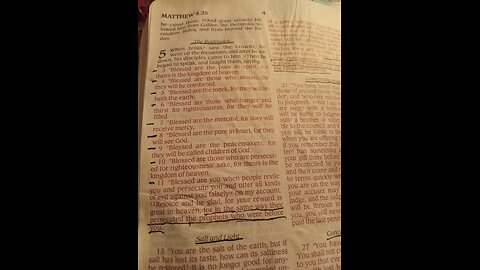 MATTHEW 4:25
4
he cured them. 25And great crowds fol-
lowed him from Galilee, the Decapolis, Je-
rusalem, Judea, and from beyond the Jor-
dan.
The Beatitudes
5 When Jesus saw the crowds, he
went up the mountain; and after he sat
down, his disciples came to him. 2Then he
began to speak, and taught them, saying:
3 "Blessed are the poor in spirit, for
theirs is the kingdom of heaven.
4 "Blessed are those who mourn, for
they will be comforted.
5 "Blessed are the meek, for they will in-
herit the earth.
6 "Blessed are those who hunger and
thirst for righteousness, for they will be
filled.
7 "Blessed are the merciful, for they will
receive mercy.
8 "Blessed are the pure in heart, for they
will see God.
9 "Blessed are the peacemakers, for
they will be called children of God.
10 "Blessed are those who are persecut-
ed for righteousness' sake, for theirs is the
kingdom of heaven.
11 "Blessed are you when people revile
you and persecute you and utter all kinds
of evil against you falsely on my account.
12Rejoice and be glad, for your reward is
great in heaven, for in the same way they
persecuted the prophets who were before
you.
Salt and Light
13 "You are the salt of the earth; but if
salt has lost its taste, how can its saltiness
be restored? It is no longer good for any-
21 "You have
those of ancient
der'; and 'whoever
to judgment.'
are angry with a
will be liable to
sult a brother or
ble to the council; and
you will be liable
when you are offering
if you remember that
ter has something
your gift there before
be reconciled to
and then come and
to terms quickly
you are on the way
your accuser may
judge, and the judge
will be thrown
you, you will never
27 "You have
'You shall not